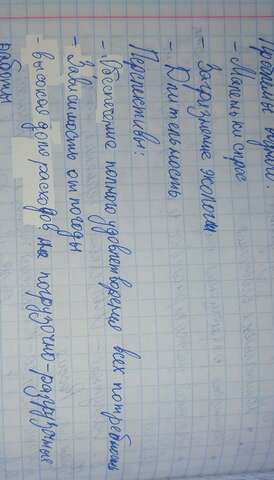 Проблемы
- Маленький спрос
- Загрязнение экологии
- Длительность
Перспективы:
- Обеспечение полного удовлетворения всех потребностей
- Зависимость от погоды
- высокая доля расходов на погрузочно-разгрузочные
работы